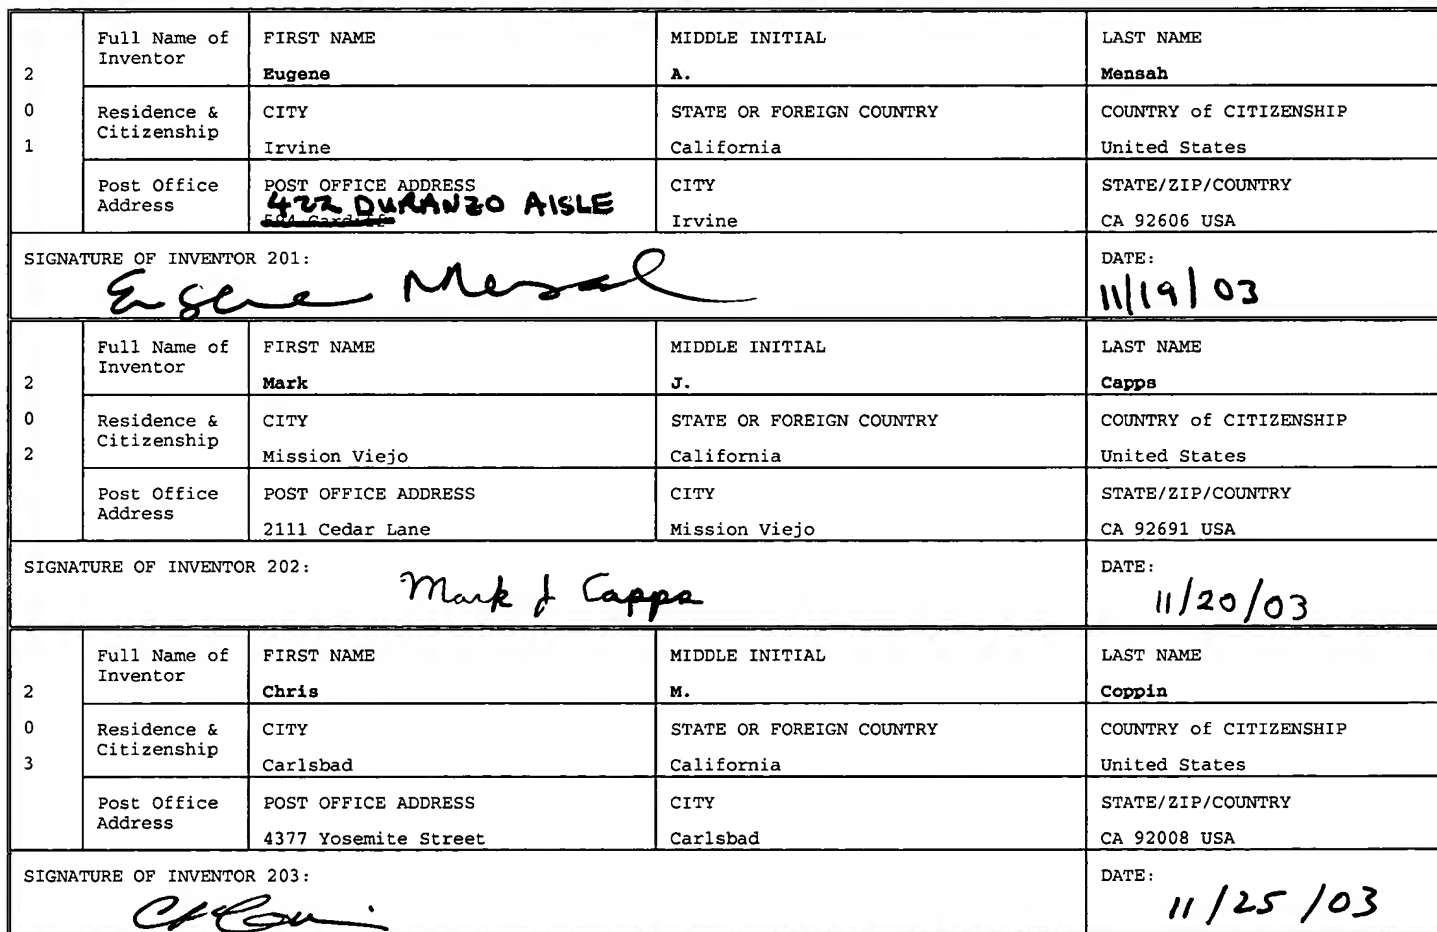 2
0
1
Full Name of Inventor
FIRST NAME
Eugene
MIDDLE INITIAL
A.
LAST NAME
Mensah
Residence & Citizenship
CITY
Irvine
STATE OR FOREIGN COUNTRY
California
COUNTRY of CITIZENSHIP
United States
Post Office Address
POST OFFICE ADDRESS
422 DURANZO AISLE
CITY
Irvine
STATE/ZIP/COUNTRY
CA 92606 USA
SIGNATURE OF INVENTOR 201:
Eugene Mensah
DATE:
11/19/03
2
0
2
Full Name of Inventor
FIRST NAME
Mark
MIDDLE INITIAL
J.
LAST NAME
Capps
Residence & Citizenship
CITY
Mission Viejo
STATE OR FOREIGN COUNTRY
California
COUNTRY of CITIZENSHIP
United States
Post Office Address
POST OFFICE ADDRESS
2111 Cedar Lane
CITY
Mission Viejo
STATE/ZIP/COUNTRY
CA 92691 USA
SIGNATURE OF INVENTOR 202:
Mark J Capps
DATE:
11/20/03
2
0
3
Full Name of Inventor
FIRST NAME
Chris
MIDDLE INITIAL
M.
LAST NAME
Coppin
Residence & Citizenship
CITY
Carlsbad
STATE OR FOREIGN COUNTRY
California
COUNTRY of CITIZENSHIP
United States
Post Office Address
POST OFFICE ADDRESS
4377 Yosemite Street
CITY
Carlsbad
STATE/ZIP/COUNTRY
CA 92008 USA
SIGNATURE OF INVENTOR 203:
DATE:
11/25/03